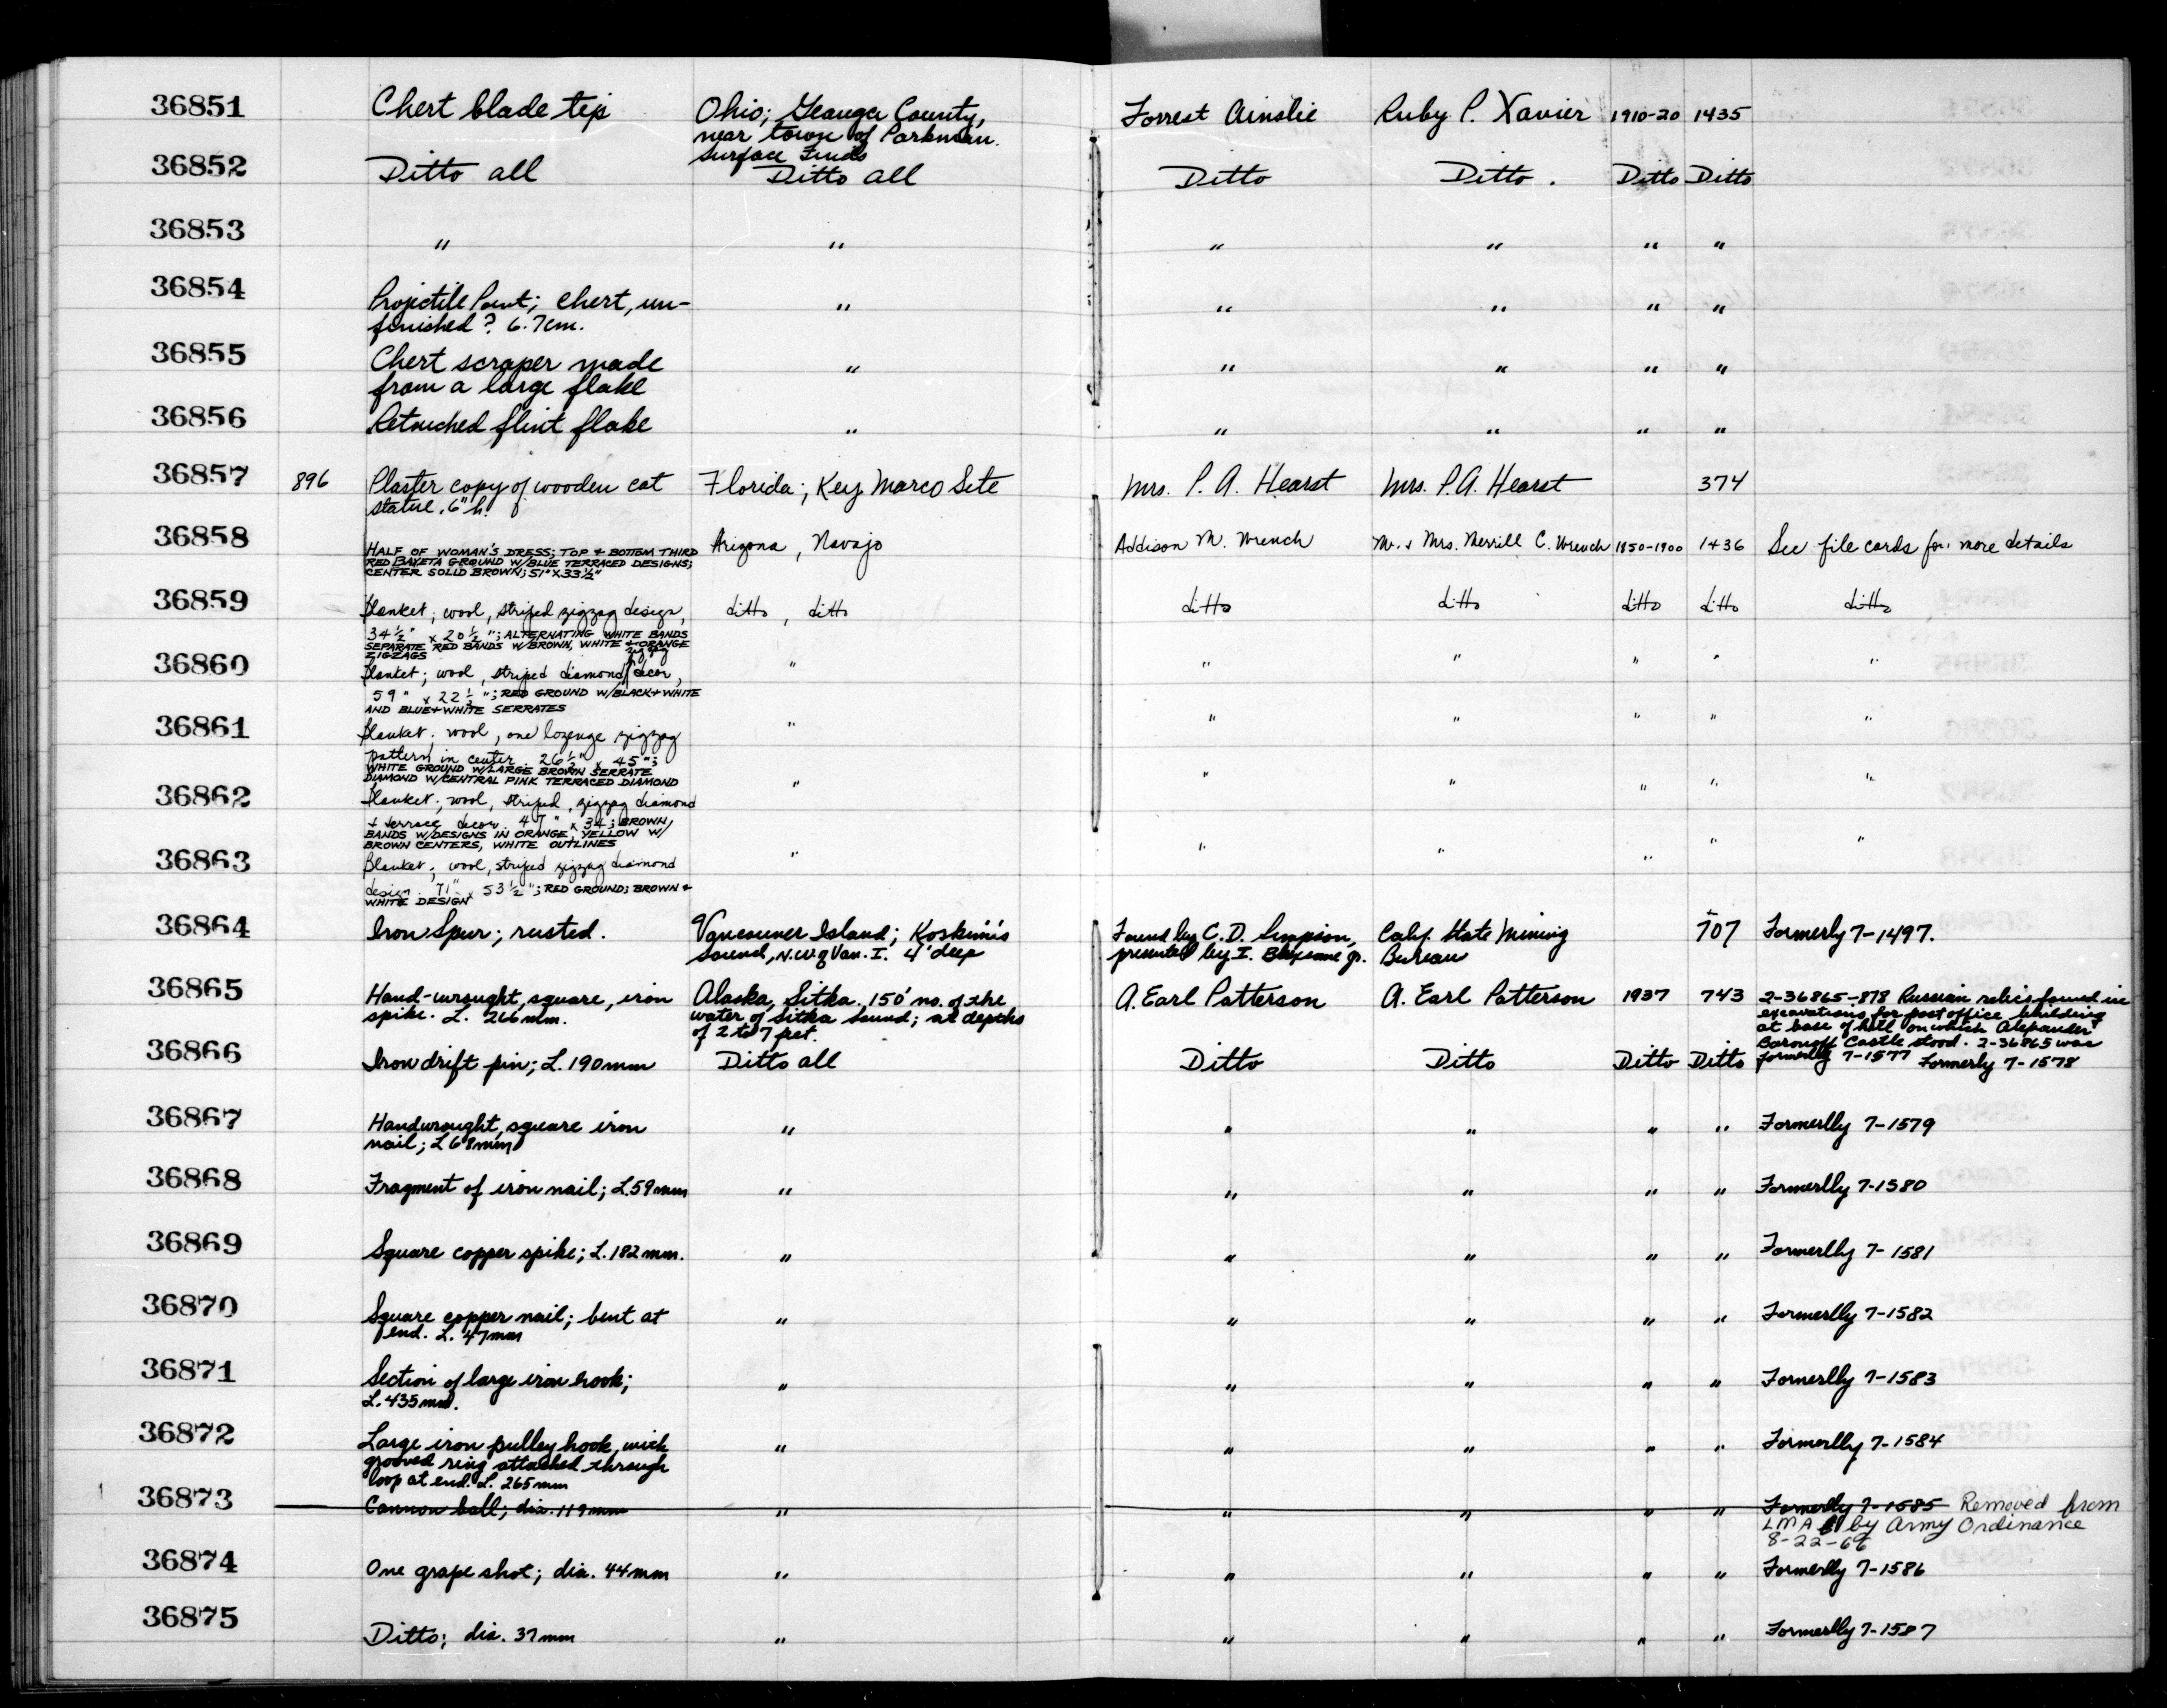 36851 Chert blade tip Ohio; Geauga County, Forrest Ainslie Ruby P. Xavier 1910-20 1435
near town of Parkman.
Surface Finds
36852 Ditto all Ditto all Ditto Ditto. Ditto Ditto
36853 " " " " " "
36854 Projectile Point; Chert, un- " " " " "
finished? 6.7cm.
36855 Chert scraper made " " " " "
from a large flake
36856 Retouched flint flake " " " " "
36857 896 Plaster copy of wooden cat Florida; Key Marco Site Mrs. P. A. Hearst Mrs. P.A. Hearst 374
statue. 6" h.
36858 HALF OF WOMAN'S DRESS; TOP + BOTTOM THIRD Arizona, Navajo Addison M. Wrench Mr. + Mrs. Merrill C. Wrench 1850-1900 1436 See file cards for more details
RED BAYETA GROUND W/BLUE TERRACED DESIGNS;
CENTER SOLID BROWN; 51" X 33½"
36859 Blanket; wool, striped zigzag design, ditto, ditto ditto ditto ditto ditto ditto
34½" x 20½"; ALTERNATING WHITE BANDS
SEPARATE RED BANDS W/BROWN, WHITE + ORANGE
ZIGZAGS
zigzag
36860 Blanket; wool, striped diamond decor, " " " " " "
59" x 22½"; RED GROUND W/BLACK+WHITE
AND BLUE+WHITE SERRATES
36861 Blanket. wool, one lozenge zigzag " " " " " "
pattern in center. 26½" x 45";
WHITE GROUND W/LARGE BROWN SERRATE
DIAMOND W/CENTRAL PINK TERRACED DIAMOND
36862 Blanket; wool, striped, zigzag diamond " " " " " "
+ terrace decor. 47" x 34; BROWN
BANDS W/DESIGNS IN ORANGE, YELLOW W/
BROWN CENTERS, WHITE OUTLINES
36863 Blanket; wool, striped zigzag diamond " " " " " "
design. 71" x 53½"; RED GROUND; BROWN +
WHITE DESIGN
36864 Iron Spur; rusted. Vancouver Island; Koskimis Found by C. D. Simpson, Calif. State Mining 707 Formerly 7-1497.
Sound, N.W. of Van. I. 4' deep presented by I. Jr. Bureau
36865 Hand-wrought, square, iron Alaska, Sitka. 150' no. of the A. Earl Patterson A. Earl Patterson 1937 743 2-36865-878 Russian relics found in
spike. L. 266 mm. water of Sitka Sound; at depths excavations for post office building
of 2 to 7 feet. at base of hill on which Alexander
Baronoff Castle stood. 2-36865 was
formerly 7-1577
36866 Iron drift pin; L. 190mm Ditto all Ditto Ditto Ditto Ditto Formerly 7-1578
36867 Handwrought, square iron " " " " " Formerlly 7-1579
nail; L 68mm
36868 Fragment of iron nail; L.59mm " " " " " Formerlly 7-1580
36869 Square copper spike; L. 182mm. " " " " " Formerlly 7-1581
36870 Square copper nail; bent at " " " " " Formerlly 7-1582
end. L. 47mm
36871 Section of large iron hook; " " " " " Formerlly 7-1583
L. 435mm.
36872 Large iron pulley hook, with " " " " " Formerlly 7-1584
grooved ring attached through
loop at end. L. 265mm
36873 Cannon ball; dia. 119mm " " " " " Formerlly 7-1585 Removed from
LMA by Army Ordinance
8-22-
36874 One grape shot; dia. 44mm " " " " " Formerlly 7-1586
36875 Ditto; dia. 37mm " " " " " Formerlly 7-1587